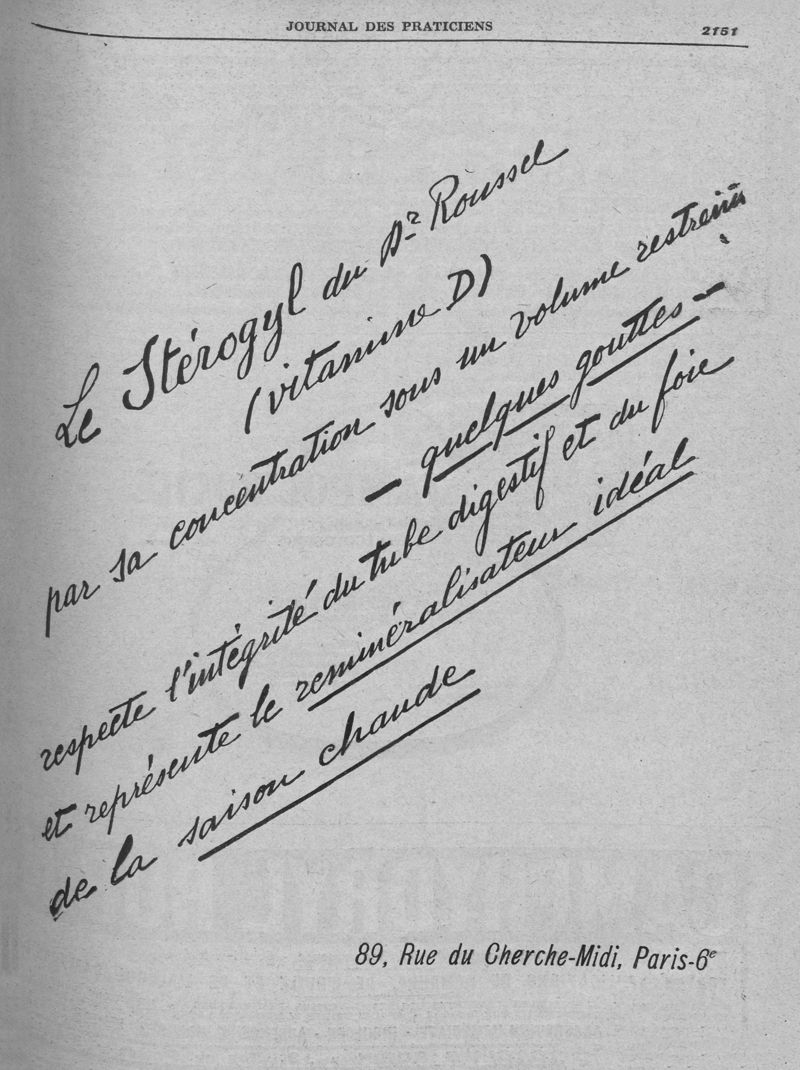 JOURNAL DES PRATICIENS
2151
Le Stérogyl du Dr Roussel
(vitamine D)
par sa concentration sous un volume restreint
— quelques gouttes —
respecte l'intégrité du tube digestif et du foie
et représente le reminéralisateur idéal
de la saison chaude.
89, Rue du Cherche-Midi, Paris-6e